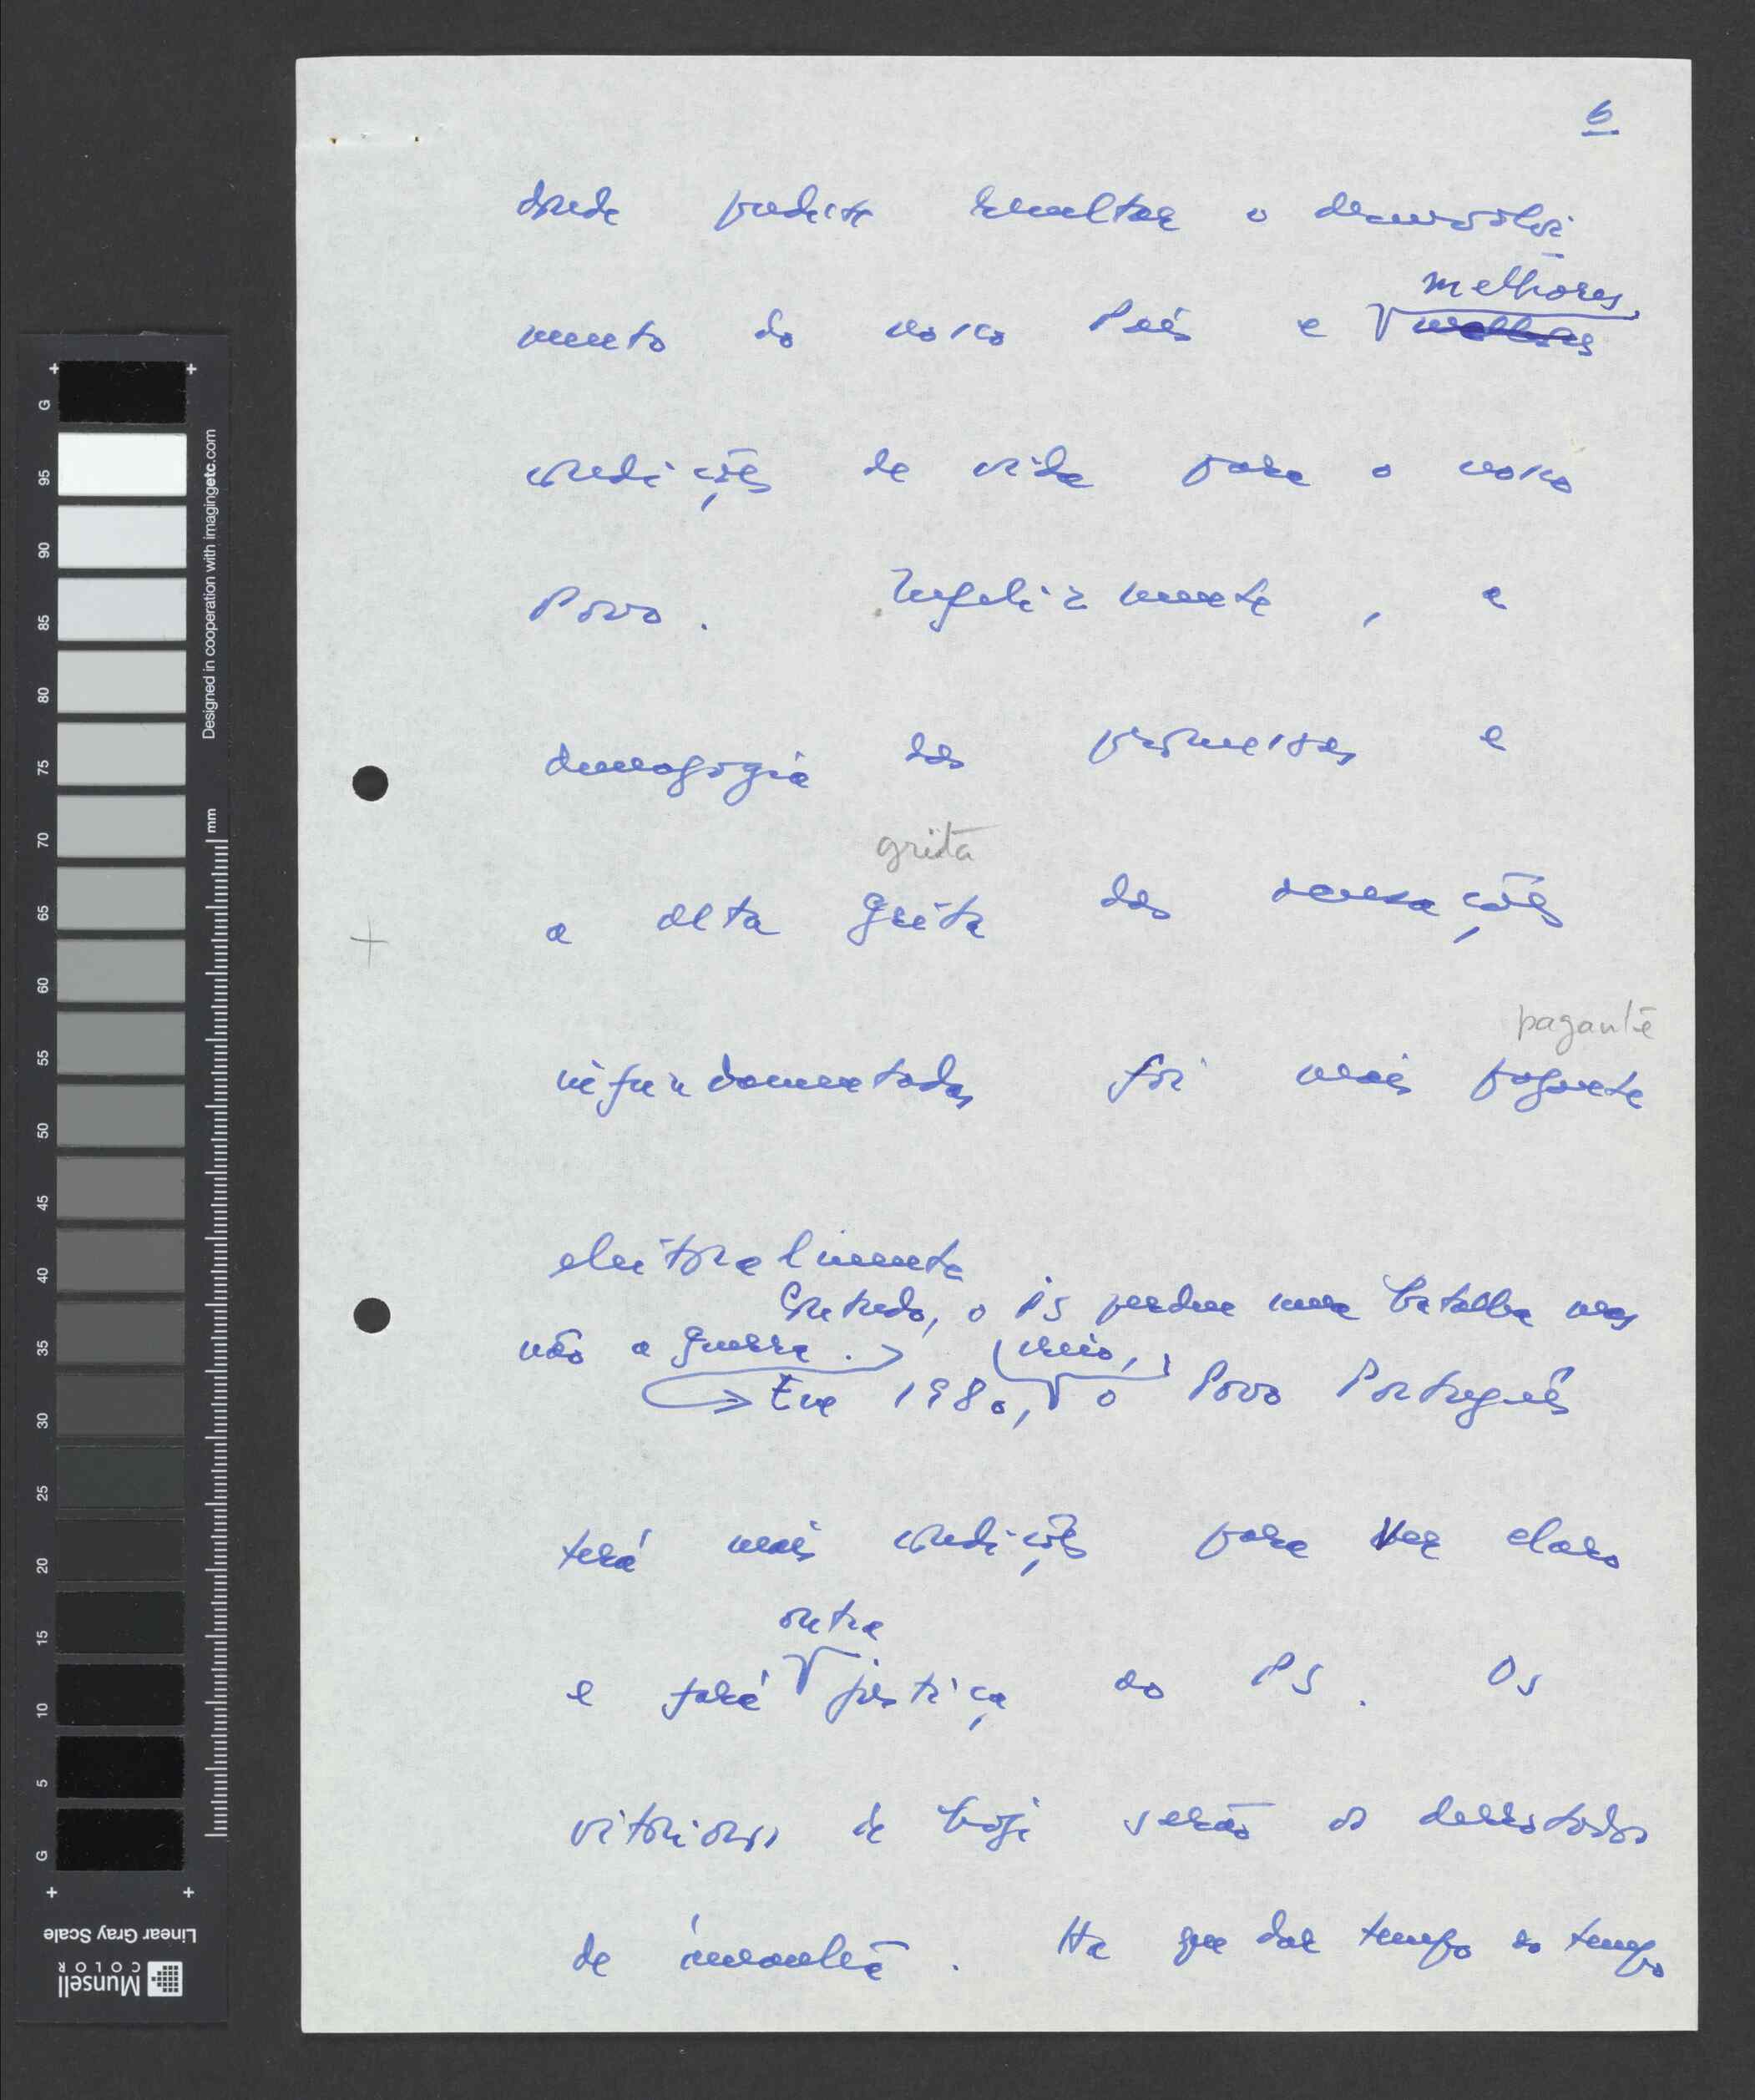 6
donde pudesse resultar o desenvolvi
mento do nosso País e melhores
condições de vida para o nosso
Povo. Infelizmente, a
demagogia das promessas e
grita
a alta grita das acusações
pagante
infundamentadas foi mais pagante
eleitoralmente
Contudo, o PS perdeu uma batalha mas
não a guerra.
creio,
Em 1980, o Povo Português
terá mais condições para ver claro
outra
e fará justiça ao PS. Os
vitoriosos de hoje serão os derrotados
de amanhã. Há que dar tempo ao tempo
G
95
90
85
80
75
70
65
60
55
50
45
40
35
30
25
20
15
10
5
G
mm
Designed in cooperation with imagingetc.com
Linear Gray Scale
Munsell
COLOR